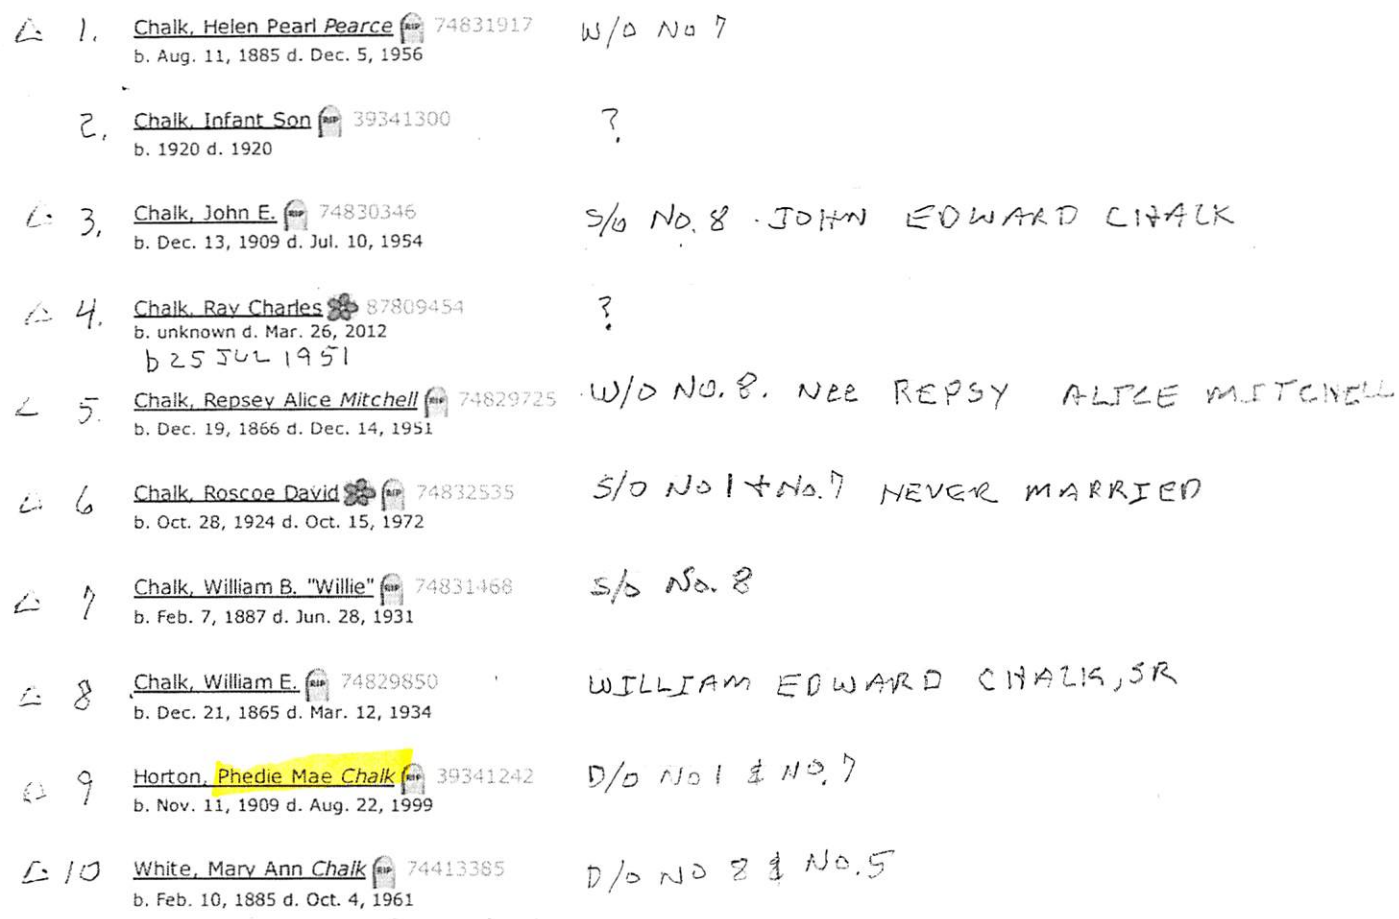 1. Chalk, Helen Pearl Pearce RIP 74831917 W/O No 7
b. Aug. 11, 1885 d. Dec. 5, 1956
2. Chalk, Infant Son RIP 39341300 ?
b. 1920 d. 1920
3. Chalk, John E. RIP 74830346 S/O NO. 8 . JOHN EDWARD CHALK
b. Dec. 13, 1909 d. Jul. 10, 1954
4. Chalk, Ray Charles 87809454 ?
b. unknown d. Mar. 26, 2012
b 25 JUL 1951
5. Chalk, Repsey Alice Mitchell RIP 74829725 W/O NO. 8. Nee REPSY ALICE MITCHELL
b. Dec. 19, 1866 d. Dec. 14, 1951
6 Chalk, Roscoe David RIP 74832535 S/O NO 1 + No. 7 NEVER MARRIED
b. Oct. 28, 1924 d. Oct. 15, 1972
7 Chalk, William B. "Willie" RIP 74831468 S/O No. 8
b. Feb. 7, 1887 d. Jun. 28, 1931
8 Chalk, William E. RIP 74829850 WILLIAM EDWARD CHALK, SR
b. Dec. 21, 1865 d. Mar. 12, 1934
9 Horton, Phedie Mae Chalk RIP 39341242 D/O NO 1 & NO. 7
b. Nov. 11, 1909 d. Aug. 22, 1999
10 White, Mary Ann Chalk RIP 74413385 D/O NO 8 & NO. 5
b. Feb. 10, 1885 d. Oct. 4, 1961